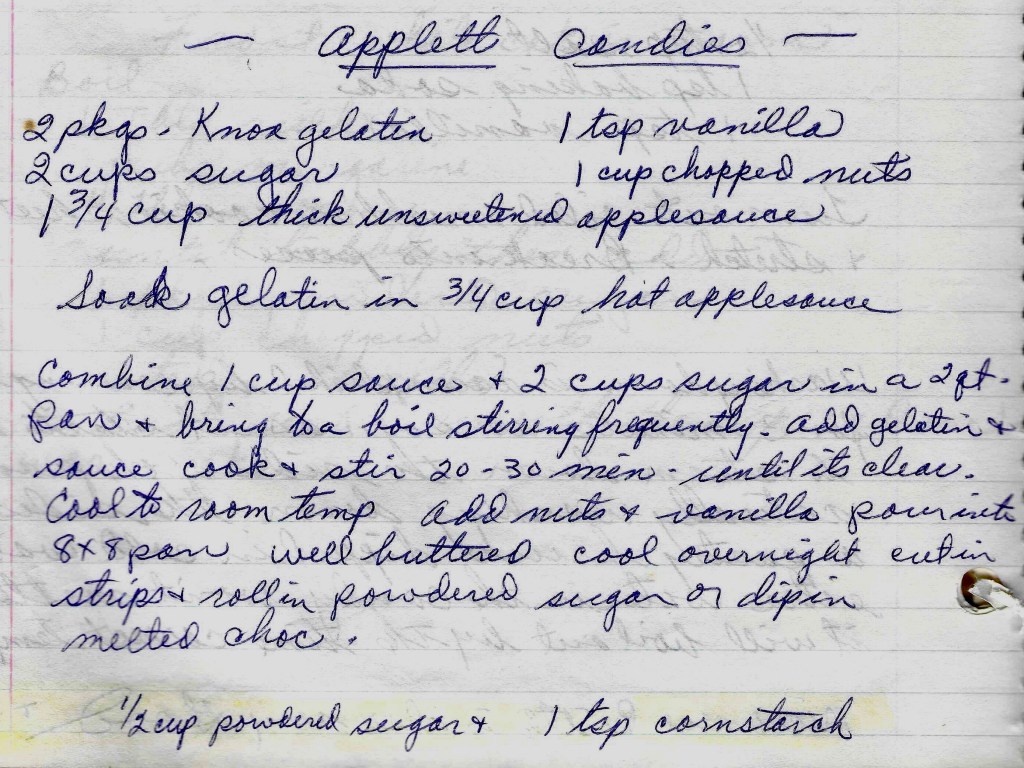 — Applett Candies —
2 pkgs - Knox gelatin 1 tsp vanilla
2 cups sugar 1 cup chopped nuts
1 3/4 cup thick unsweetened applesauce
Soak gelatin in 3/4 cup hot applesauce
Combine 1 cup sauce + 2 cups sugar in a 2 qt.
pan + bring to a boil stirring frequently. add gelatin +
sauce cook + stir 20-30 min - until its clear.
Cool to room temp add nuts + vanilla pour into
8x8 pan well buttered cool overnight cut in
strips + roll in powdered sugar or dip in
melted choc.
1/2 cup powdered sugar + 1 tsp cornstarch